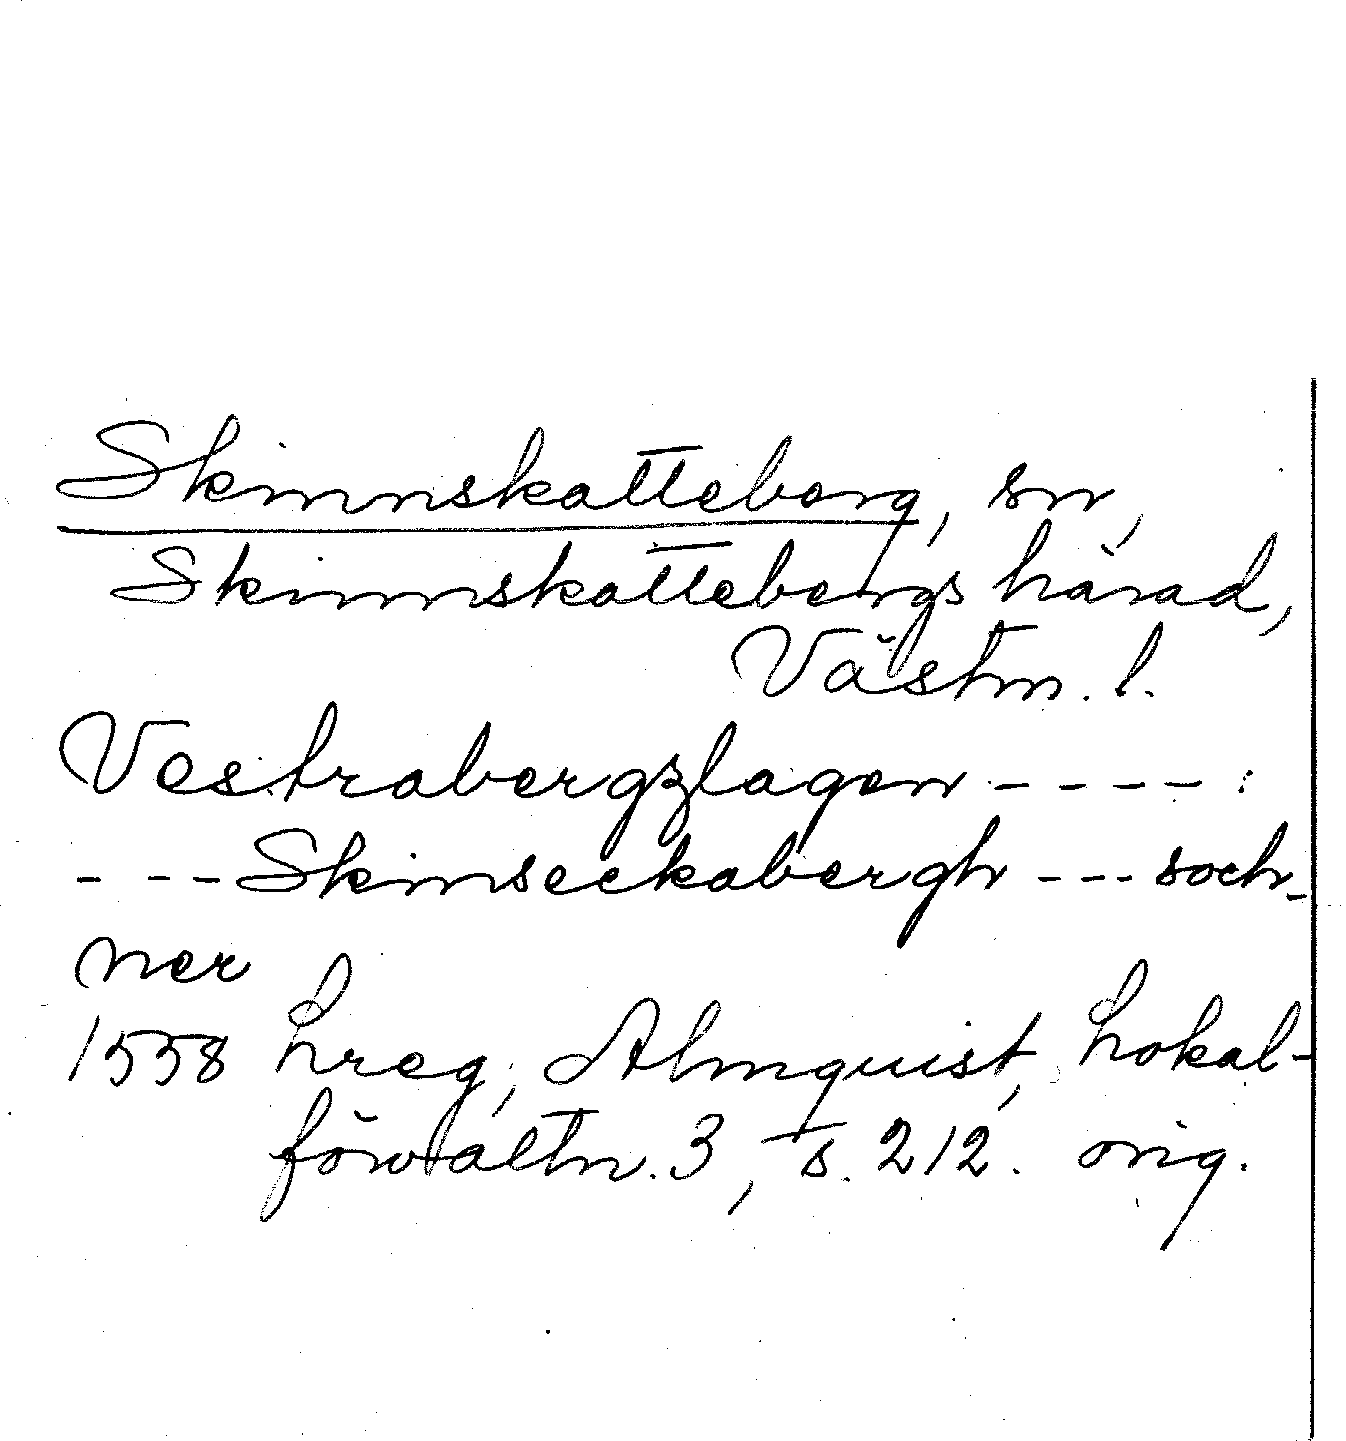 Skinnskatteberg, sn,
Skinnskattebergs härad,
Västm. l.
Vestrabergzlagen - - - - :
- - - Skinseckabergh - - - soch-
ner
1558 hreg, Almquist, Lokal-
förvaltn. 3, s. 212. orig.